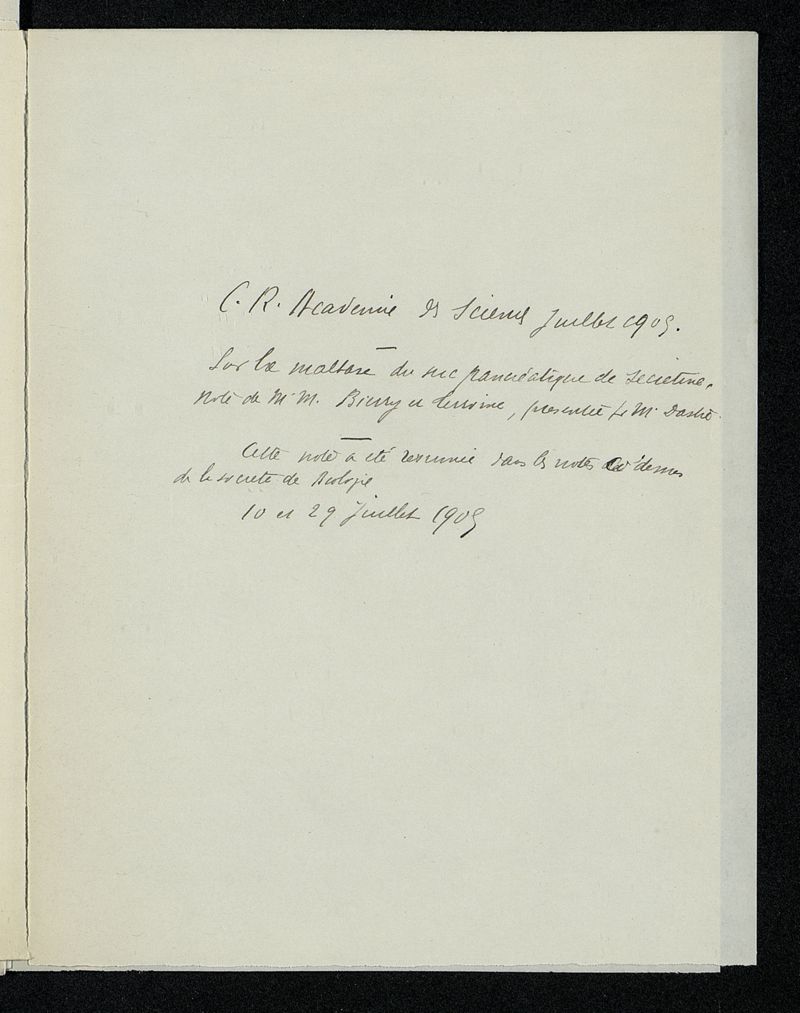 C. R. Academie des Sciences Juillet 1905.
Sur la maltase du suc pancréatique de Secretine.
Note de M. M. Bierry et Terroine, présentée par M. Dastre.
Cette note a été resumée dans les notes ci dessus
de la societe de Biologie
10 et 29 Juillet 1905